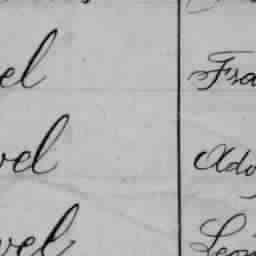 el Fra
vel Ado
vel Leon